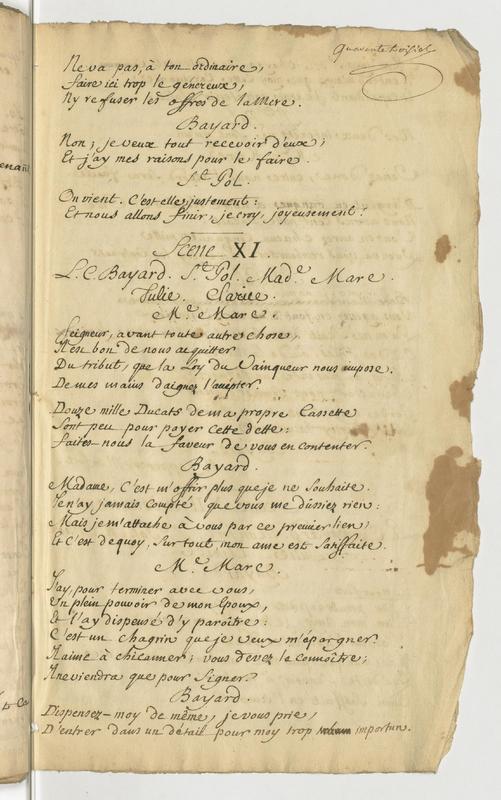 Quarante huitie
Ne va pas, à ton ordinaire,
faire ici trop le genereux,
Ny refuser les offres de la Mere.
Bayard.
Non; je veux tout recevoir d'eux;
Et j'ay mes raisons pour le faire.
St. Pol.
On vient. C'est elles, justement:
Et nous allons finir, je croy, joyeusement.
Scene XI.
L. C. Bayard. St. Pol. Made. Mare.
Julie. Clarice.
Me. Mare.
Seigneur, avant toute autre chose,
Il est bon de nous acquitter
Du tribut, que la Loy du Vainqueur nous impose.
De mes mains daignez l'accepter.
Douze mille Ducats de ma propre Cassette
Sont peu pour payer cette dette:
faites-nous la faveur de vous en contenter.
Bayard.
Madame, C'est m'offrir plus que je ne Souhaite.
Je n'ay jamais Compté que vous me dûssiez rien:
Mais je m'attache à vous par ce premier lien;
Et c'est de quoy, Sur tout, mon ame est Satisfaite.
Me. Mare.
J'ay, pour terminer avec vous,
Un plein pouvoir de mon Epoux,
Et l'ay dispensé d'y paroître:
C'est un chagrin que je veux m'épargner.
Il aime à chicanner; vous devez le connoître;
Il ne viendra que pour Signer.
Bayard.
Dispensez-moy de même, je vous prie,
D'entrer dans un détail pour moy trop importun.
enant